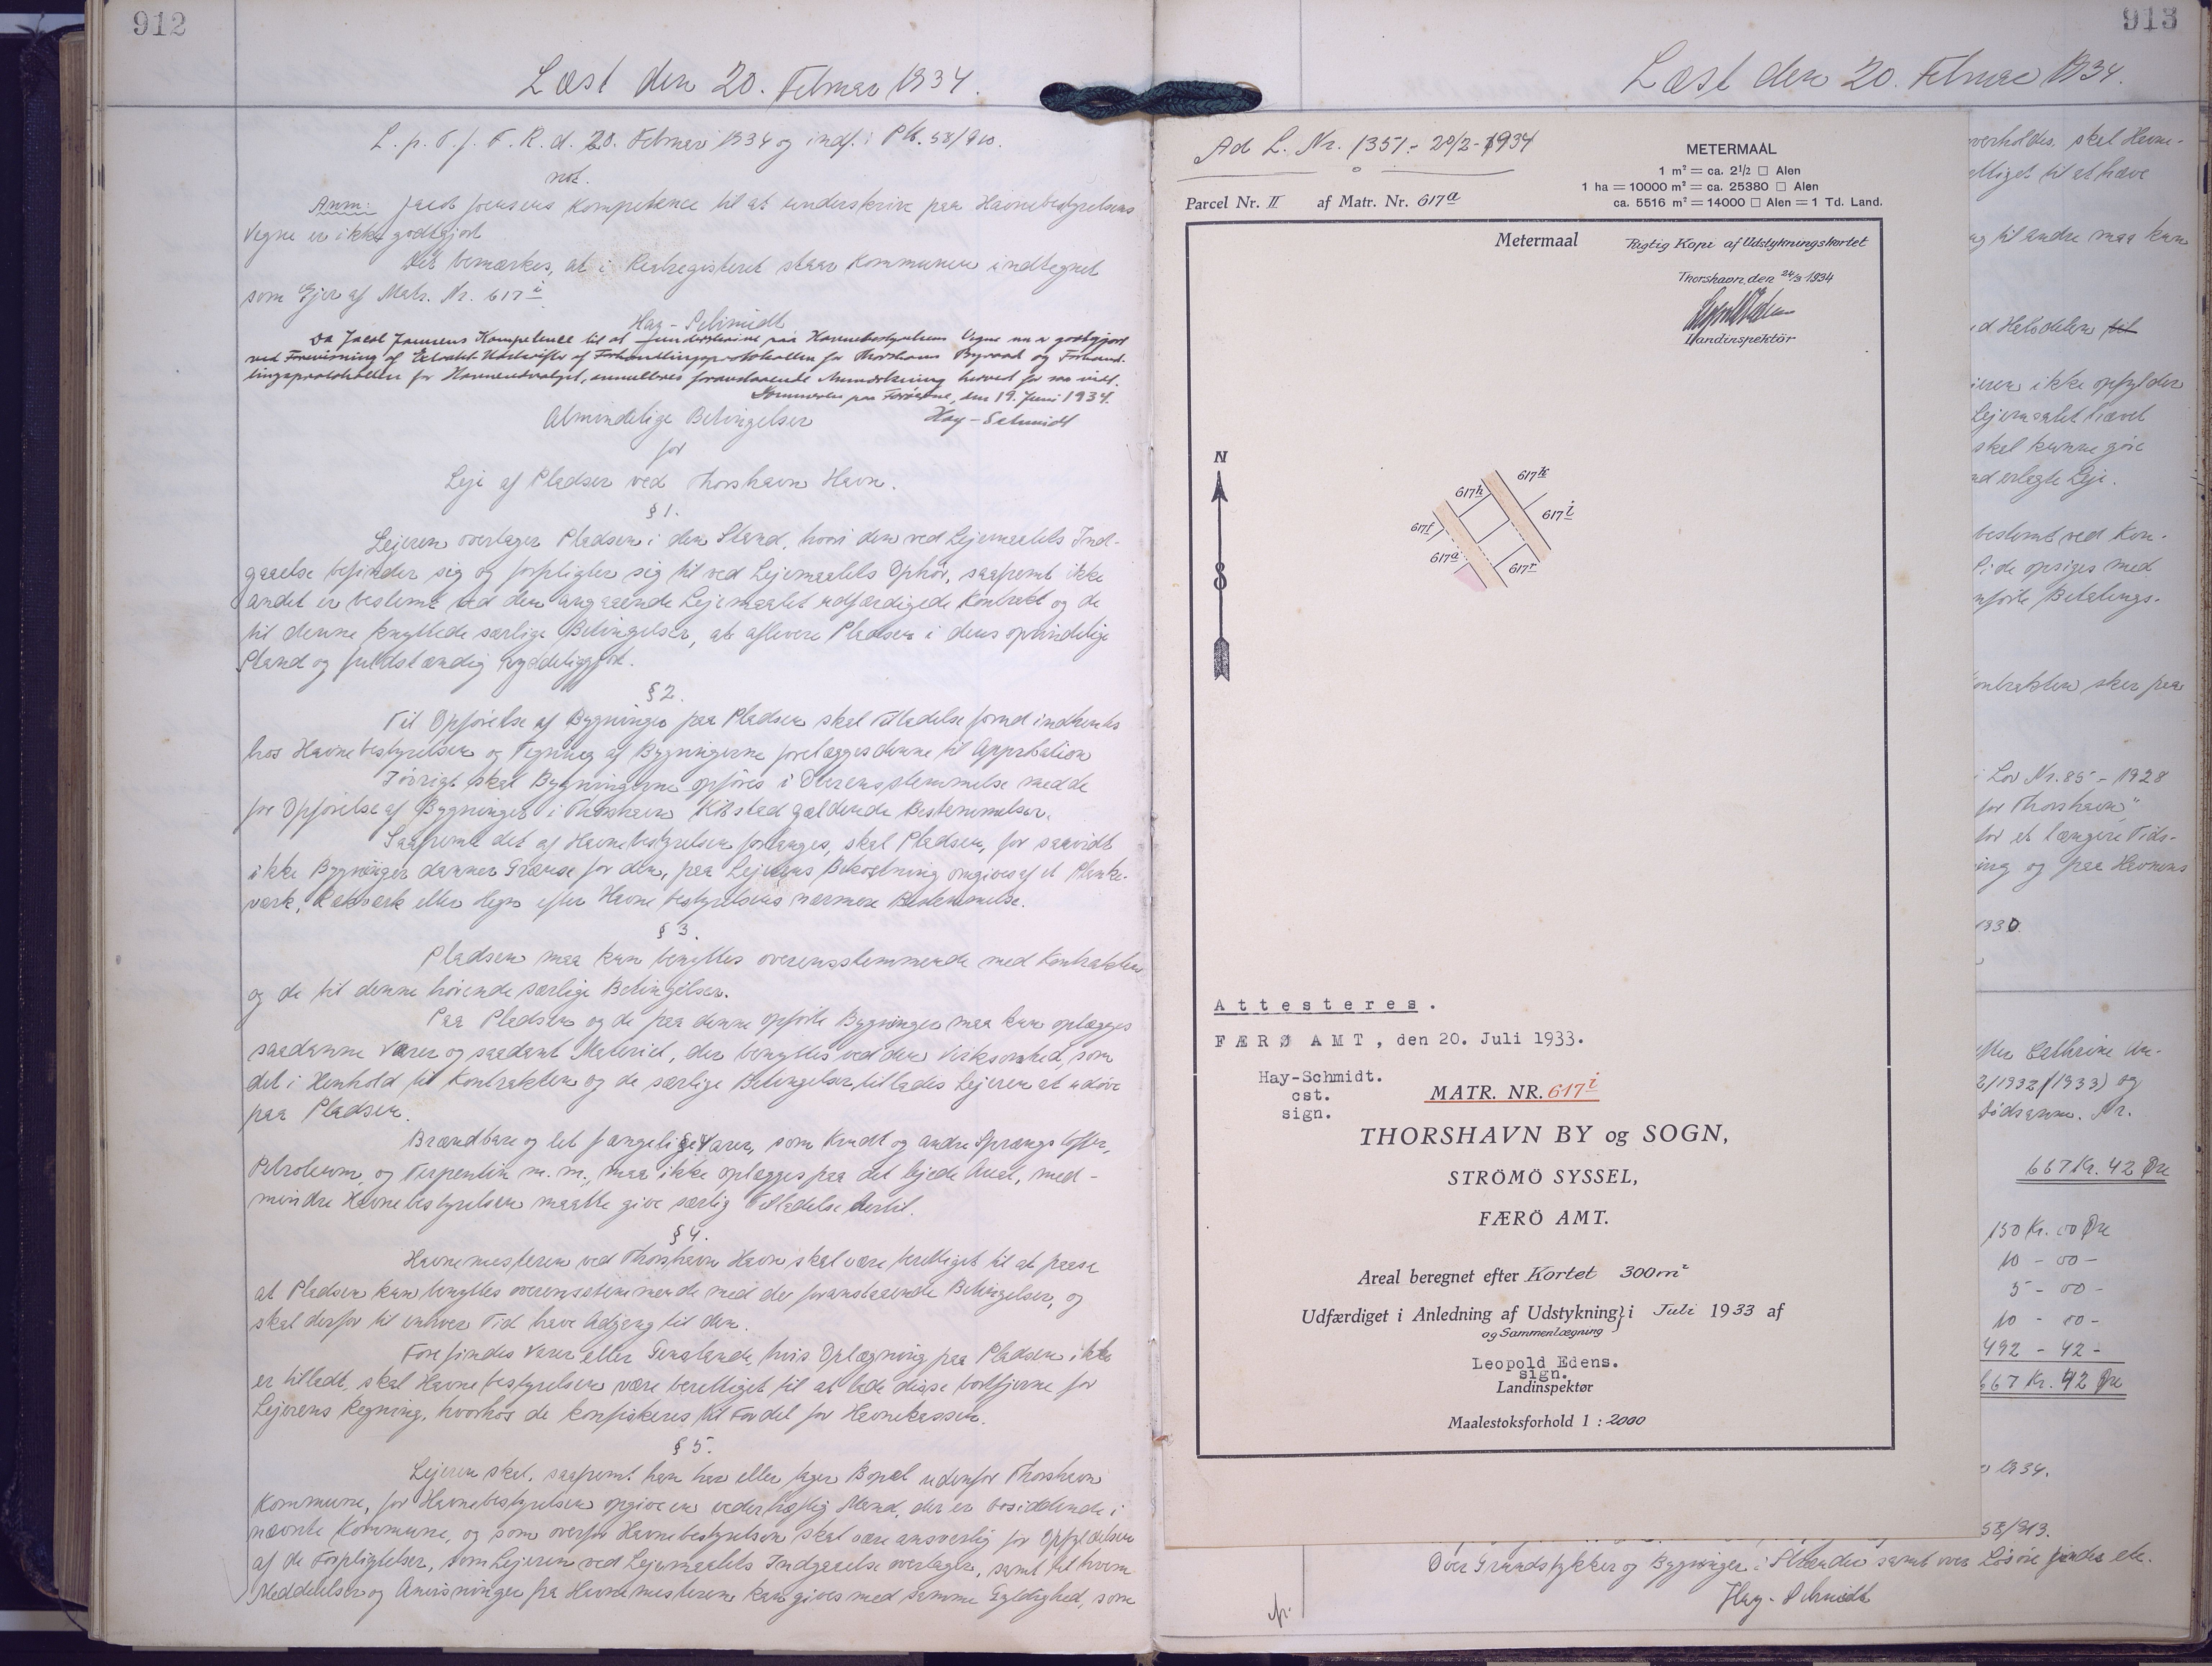 912
Læst den 20. Februar 1934.
L. p. T. f. F. R. d. 20. Februar 1934 og indf. i Pk. 58/910.
not.
Anm: Jacob Joensens Kompetence til at underskrive paa Havnebestyrelsens
Vegne er ikke godtgjort
Det bemærkes, at i Realregisteret staar Kommunen indtegnet
som Ejer af Matr. Nr. 617 i
Hay-Schmidt
Da Jacob Joensens Kompetence til at underskrive paa Havnebestyrelsens Vegne nu er godtgjort
ved Forevisning af Udskrifter af Forhandlingsprotokollen for Thorshavns Byraad og Forhand-
lingsprotokollen for Havneudvalget, annulleres foranstaaende Anmærkning herved for saa vidt.
Dommeren paa Færøerne, den 19. Juni 1934.
Hay-Schmidt
Almindelige Betingelser
for
Leje af Pladser ved Thorshavn Havn.
§ 1.
Lejeren overtager Pladsen i den Stand, hvori den ved Lejemaalets Ind-
gaaelse befinder sig og forpligter sig til ved Lejemaalets Ophør, saafremt ikke
andet er bestemt ved den angaaende Lejemaalet udfærdigede Kontrakt og de
til denne knyttede særlige Betingelser, at aflevere Pladsen i dens oprindelige
Stand og fuldstændig ryddeliggjort.
§ 2.
Til Opførelse af Bygninger paa Pladsen skal Tilladelse forud indhentes
hos Havnebestyrelsen og Tegning af Bygningerne forelægges denne til Approbation
Iøvrigt skal Bygningerne opføres i Overensstemmelse med de
for Opførelse af Bygninger i Thorshavn Købstad gældende Bestemmelser.
Saafremt det af Havnebestyrelsen forlanges, skal Pladsen, for saavidt
ikke Bygninger danner Grænse for den, paa Lejerens Bekostning omgives af et Planke-
værk, Rækværk eller Hegn efter Havnebestyrelsens nærmere Bestemmelse.
§ 3.
Pladsen maa kun benyttes overensstemmende med Kontrakten
og de til denne hørende særlige Betingelser.
Paa Pladsen og de paa denne opførte Bygninger maa kun oplægges
saadanne Varer og saadant Materiel, der benyttes ved den Virksomhed, som
det i Henhold til Kontrakten og de særlige Betingelser tillades Lejeren at udøve
paa Pladsen.
Brændbare og let fængelige Varer, som Krudt og andre Sprængstoffer,
Petroleum og Terpentin m. m., maa ikke oplægges paa det lejede Areal, med-
mindre Havnebestyrelsen maatte give særlig Tilladelse dertil.
§ 4.
Havnemesteren ved Thorshavn Havn skal være berettiget til at paase
at Pladsen kun benyttes overensstemmende med de foranstaaende Betingelser, og
skal derfor til enhver Tid have Adgang til den.
Forefindes Varer eller Genstande, hvis Oplægning paa Pladsen ikke
er tilladt, skal Havnebestyrelsen være berettiget til at lade disse bortfjerne for
Lejerens Regning, hvorhos de konfiskeres til Fordel for Havnekassen.
§ 5.
Lejeren skal, saafremt han har eller tager Bopæl udenfor Thorshavn
Kommune, for Havnebestyrelsen opgive en vederhæftig Mand, der er bosiddende i
nævnte Kommune, og som overfor Havnebestyrelsen skal være ansvarlig for Opfyldelsen
af de Forpligtelser, som Lejeren ved Lejemaalets Indgaaelse overtager, samt til hvem
Meddelelser og Anvisninger fra Havnemesteren kan gives med samme Gyldighed, som
913
Læst den 20. Februar 1934.
Ad L. Nr. 1351 - 20/2 - 1934
METERMAAL
1 m² = ca. 2½ □ Alen
1 ha = 10000 m² = ca. 25380 □ Alen
ca. 5516 m² = 14000 □ Alen = 1 Td. Land.
Parcel Nr. II af Matr. Nr. 617a
Metermaal
Rigtig Kopi af Udstykningskortet
Thorshavn, den 24/3 1934
Landinspektör
N
617k
617h
617i
617f
617a
617r
Attesteres.
FÆRØ AMT, den 20. Juli 1933.
Hay-Schmidt.
cst.
sign.
MATR. NR. 617 i
THORSHAVN BY og SOGN,
STRÖMÖ SYSSEL,
FÆRÖ AMT.
Areal beregnet efter Kortet 300 m²
Udfærdiget i Anledning af Udstykning} i Juli 1933 af
og Sammenlægning
Leopold Edens.
sign.
Landinspektør
Maalestoksforhold 1 : 2000
overholdes, skal Havne-
ettiget til at hæve
til andre maa kun
d Helsdelen til
ikke opfylder
Lejemaalet hævet
skal kunne göre
erlagte Leje.
bestemt ved Kon-
Side opsiges med
Betalings-
Kontrakten sker paa
i Lov Nr. 85 - 1928
for Thorshavn"
for et længere Tids-
og paa Havnens
1930
efter Cathrine An-
2/1932 (1933) og
Dødsanm. Nr.
667 Kr. 42 Øre
150 Kr. 00 Øre
10 - 00 -
5 - 00 -
10 - 00 -
492 - 42 -
667 Kr. 42 Øre
1934.
58/913.
Over Grundstykker og Bygninger i Strænder samt over Løsøre findes etc.
Hay-Schmidt